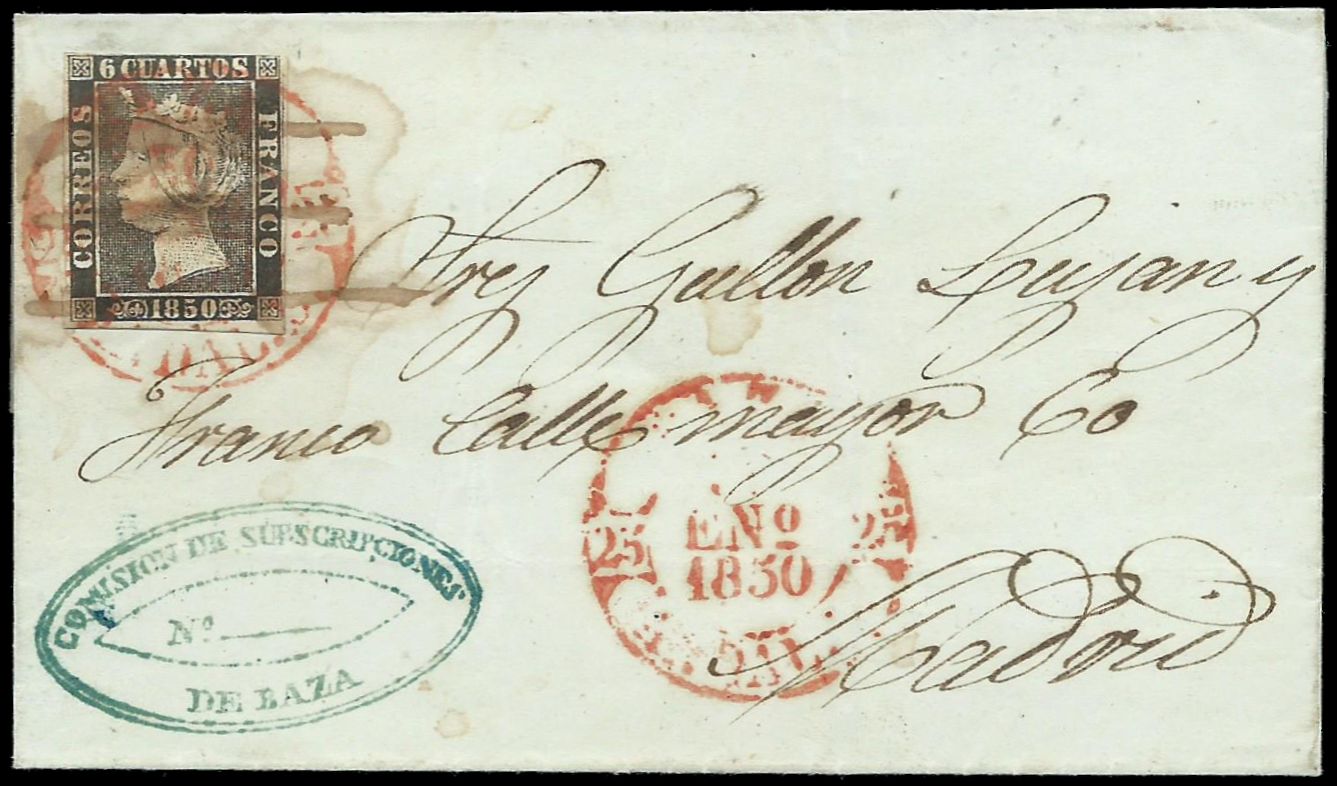 6 CUARTOS
CORREOS
FRANCO
1850
Gullon Lujan y
Franco Calle mayor
Madrid
25 ENº 25
1850
COMISION DE SUBSCRIPCIONES
Nº
DE BAZA